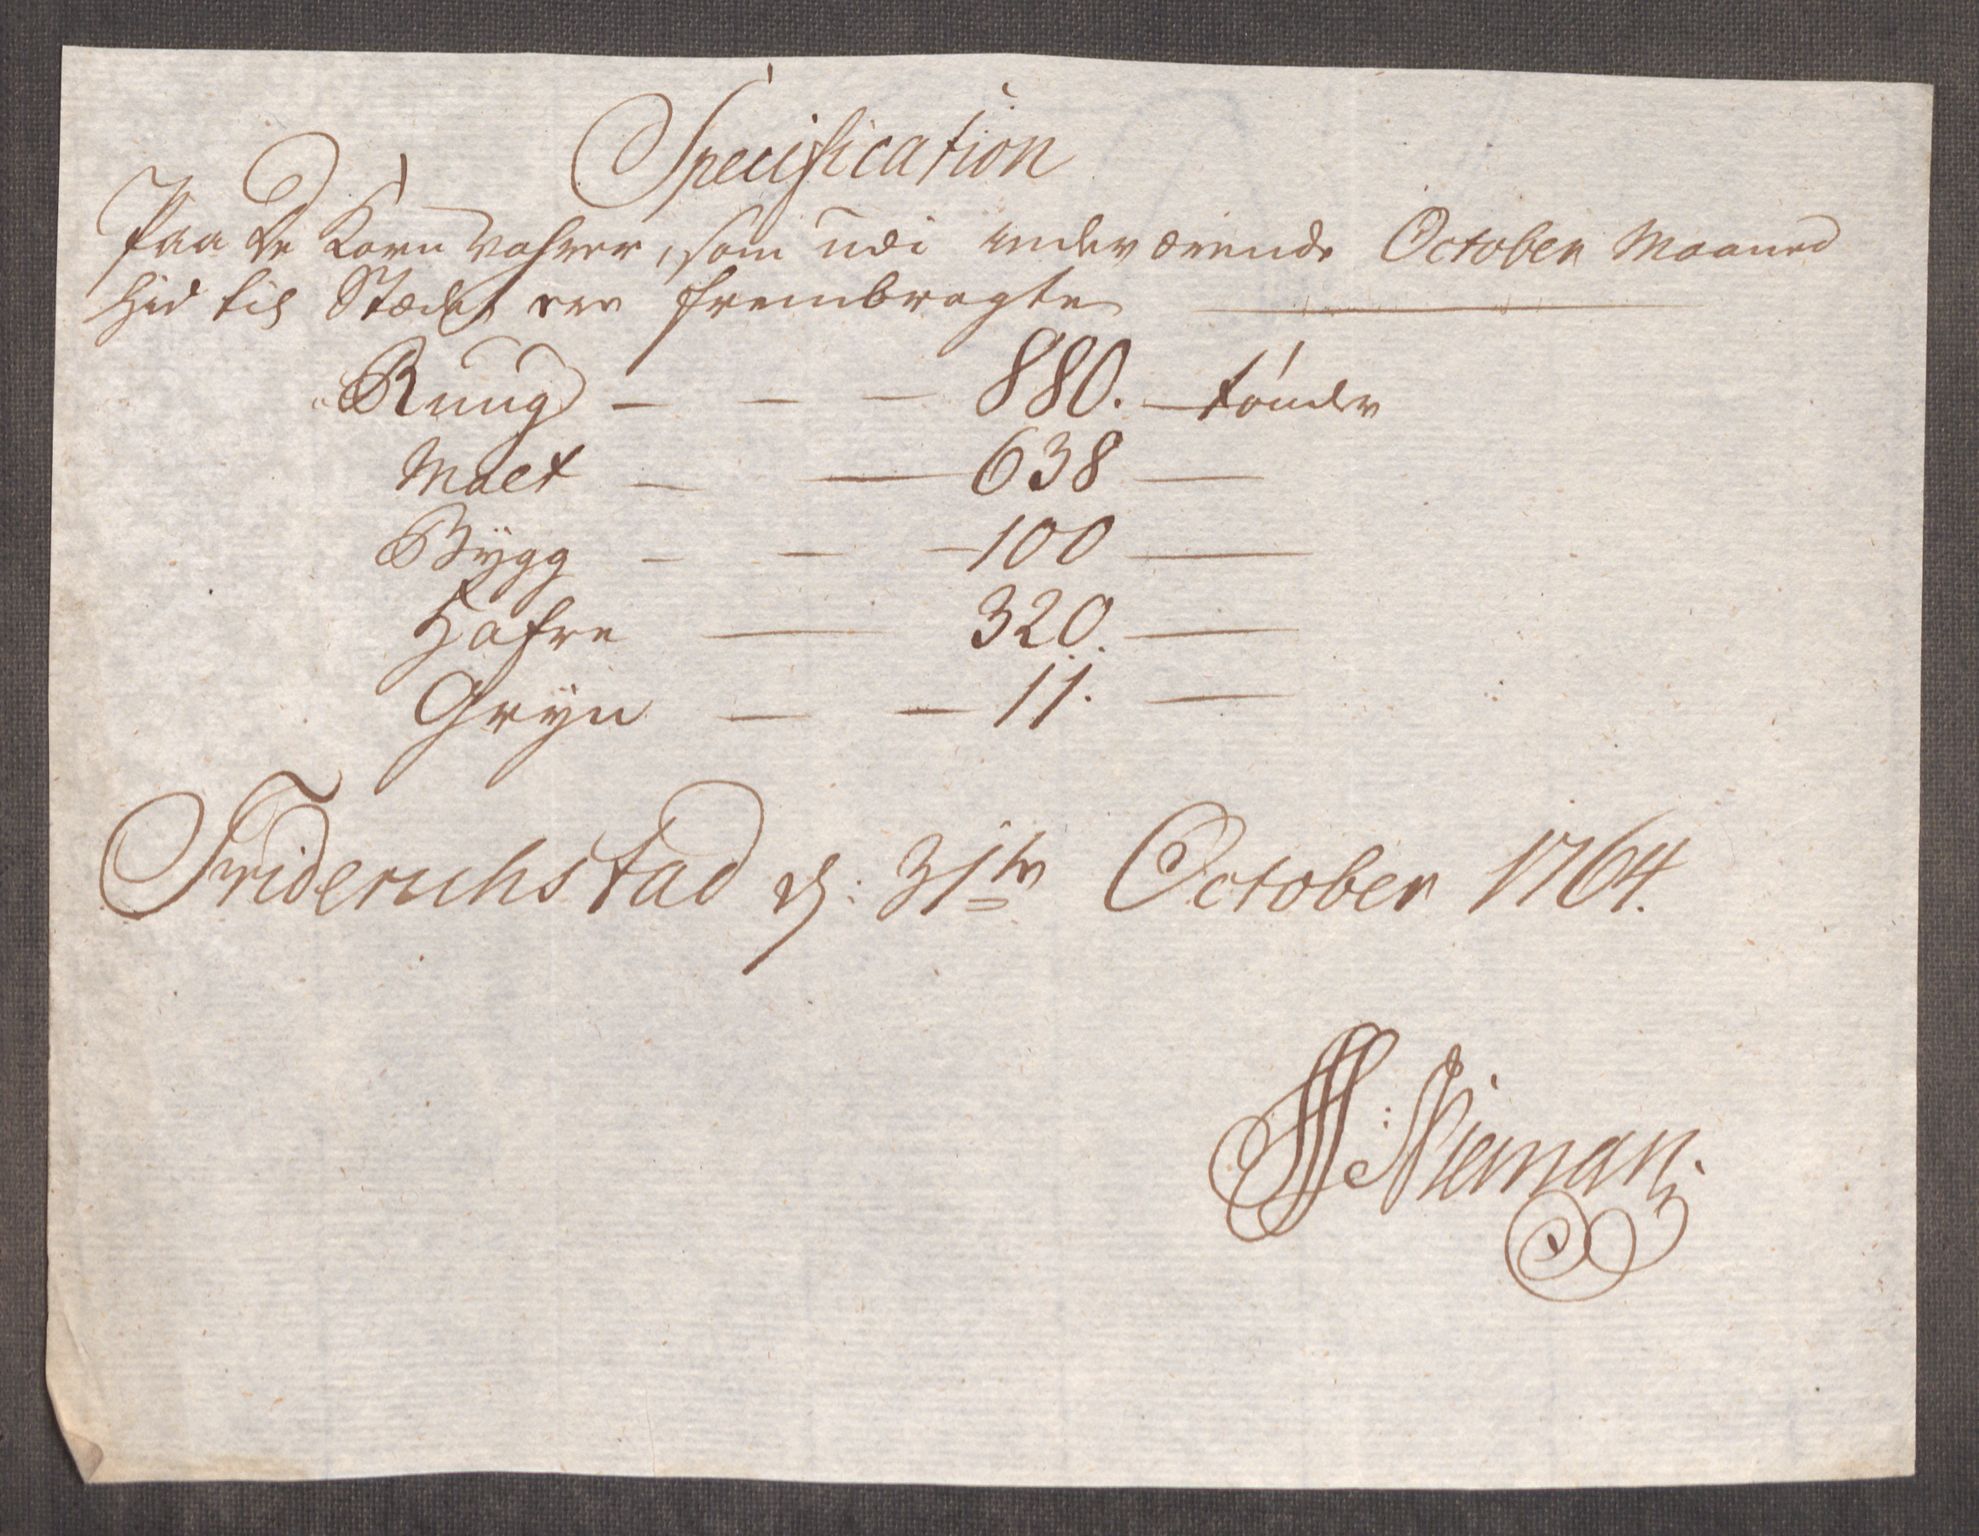 Specification
Paa De Korn Vahrer, som udi indeværende October Maaned
hid til Stædet ere frembragte
Ruug — — — 880. — tønder
Malt — — 638 —
Bygg — — — 100 —
Hafre — 320. —
Gryn — — 11. —
Friderichstad d: 31te October 1764.
Nieman